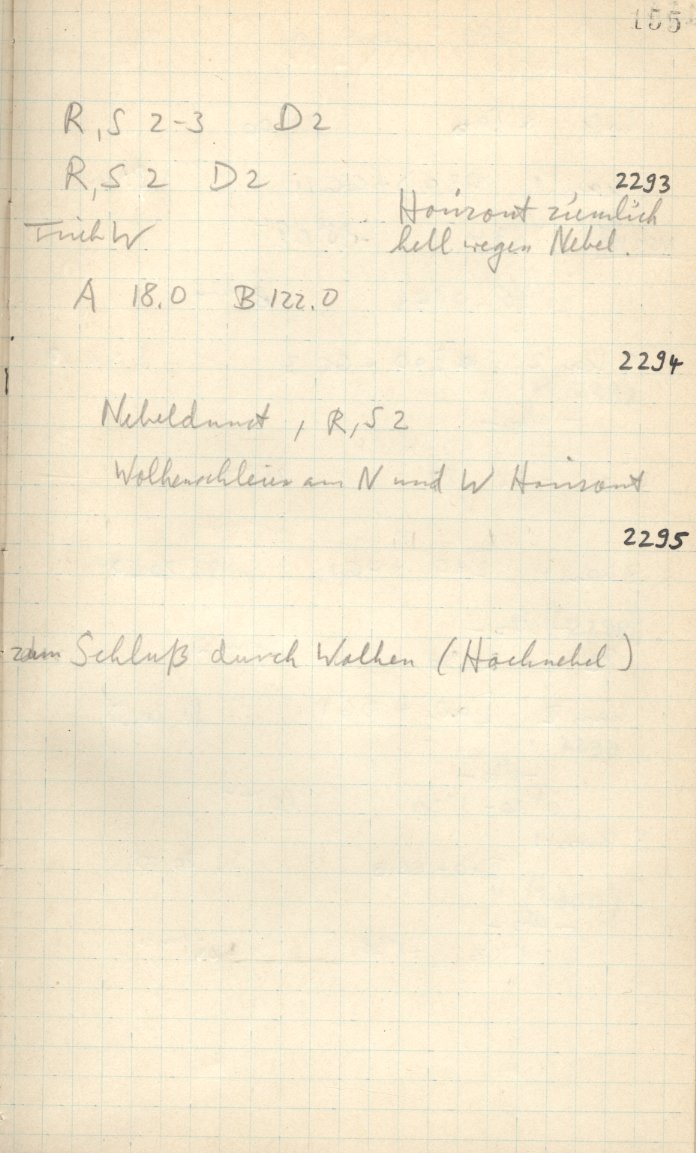 155
R, S 2-3 D2
R, S 2 D2
2293
Horizont ziemlich
hell wegen Nebel.
W
A 18.0 B 122.0
2294
Nebeldunst, R, S 2
Wolkenschleier am N und W Horizont
2295
zum Schluß durch Wolken (Hochnebel)